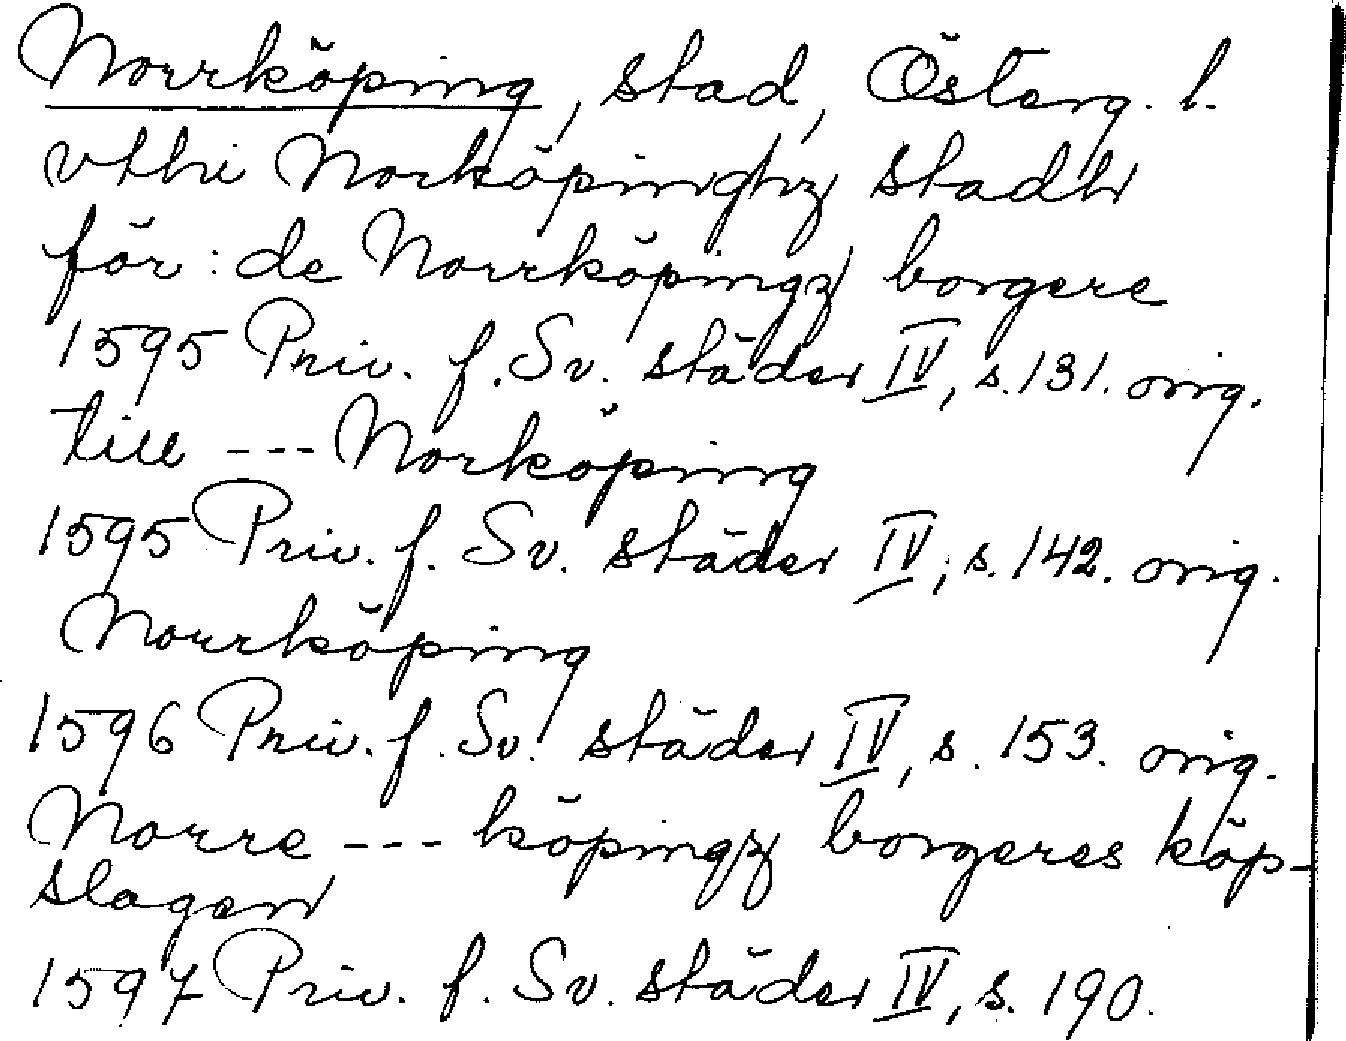 Norrköping, stad, Österg. l.
vthi Norköpinghz stadh
för: de Norrköpingz borgere
1595 Priv. f. Sv. städer IV, s. 131. orig.
till --- Norköping
1595 Priv. f. Sv. städer IV, s. 142. orig.
Norrköping
1596 Priv. f. Sv. städer IV, s. 153. orig.
Norre --- köpingz borgeres köp-
slagen
1597 Priv. f. Sv. städer IV, s. 190.